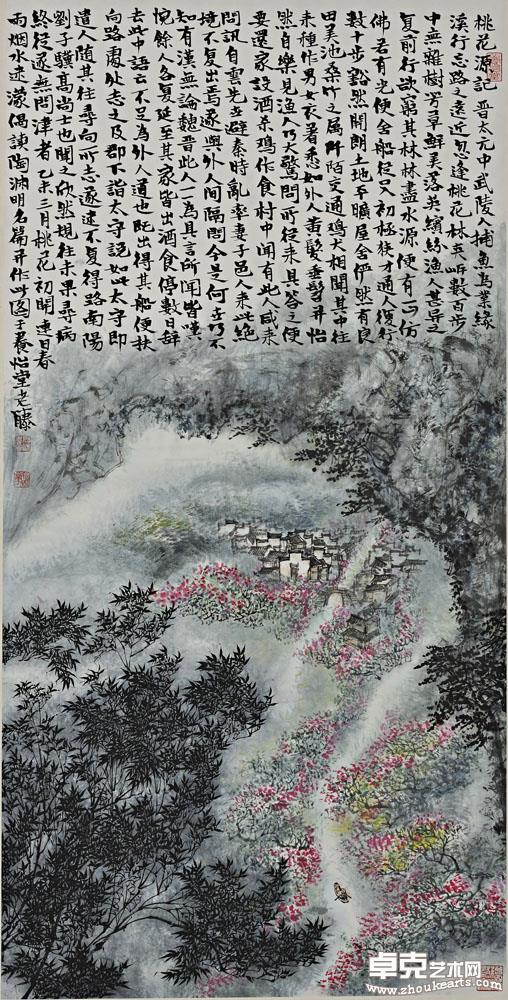 桃花源記 晋太元中武陵人捕魚為業緣
溪行忘路之遠近忽逢桃花林夾岸數百步
中無雜樹芳草鮮美落英繽紛漁人甚异之
复前行欲窮其林林盡水源便有一山仿
佛若有光便舍船從口初極狹才通人復行
數十步豁然開朗土地平曠屋舍儼然有良
田美池桑竹之属阡陌交通鸡犬相聞其中往
来種作男女衣著悉如外人黄髮垂髫并怡
然自樂見漁人乃大驚問所從来具答之便
要還家設酒杀鸡作食村中聞有此人咸来
問訊自雲先世避秦時亂率妻子邑人来此絶
境不复出焉遂與外人間隔問今是何世乃不
知有漢無論魏晋此人一一為具言所聞皆嘆
惋餘人各复延至其家皆出酒食停數日辞
去此中語云不足為外人道也既出得其船便扶
向路處處志之及郡下詣太守說如此太守即
遣人随其往尋向所志遂迷不复得路南陽
劉子驥高尚士也聞之欣然規往未果尋病
終後遂無問津者乙未三月桃花初開連日春
雨烟水迷濛偶讀陶淵明名篇并作此图于養怡堂老
卓克艺术网
www.zhoukearts.com